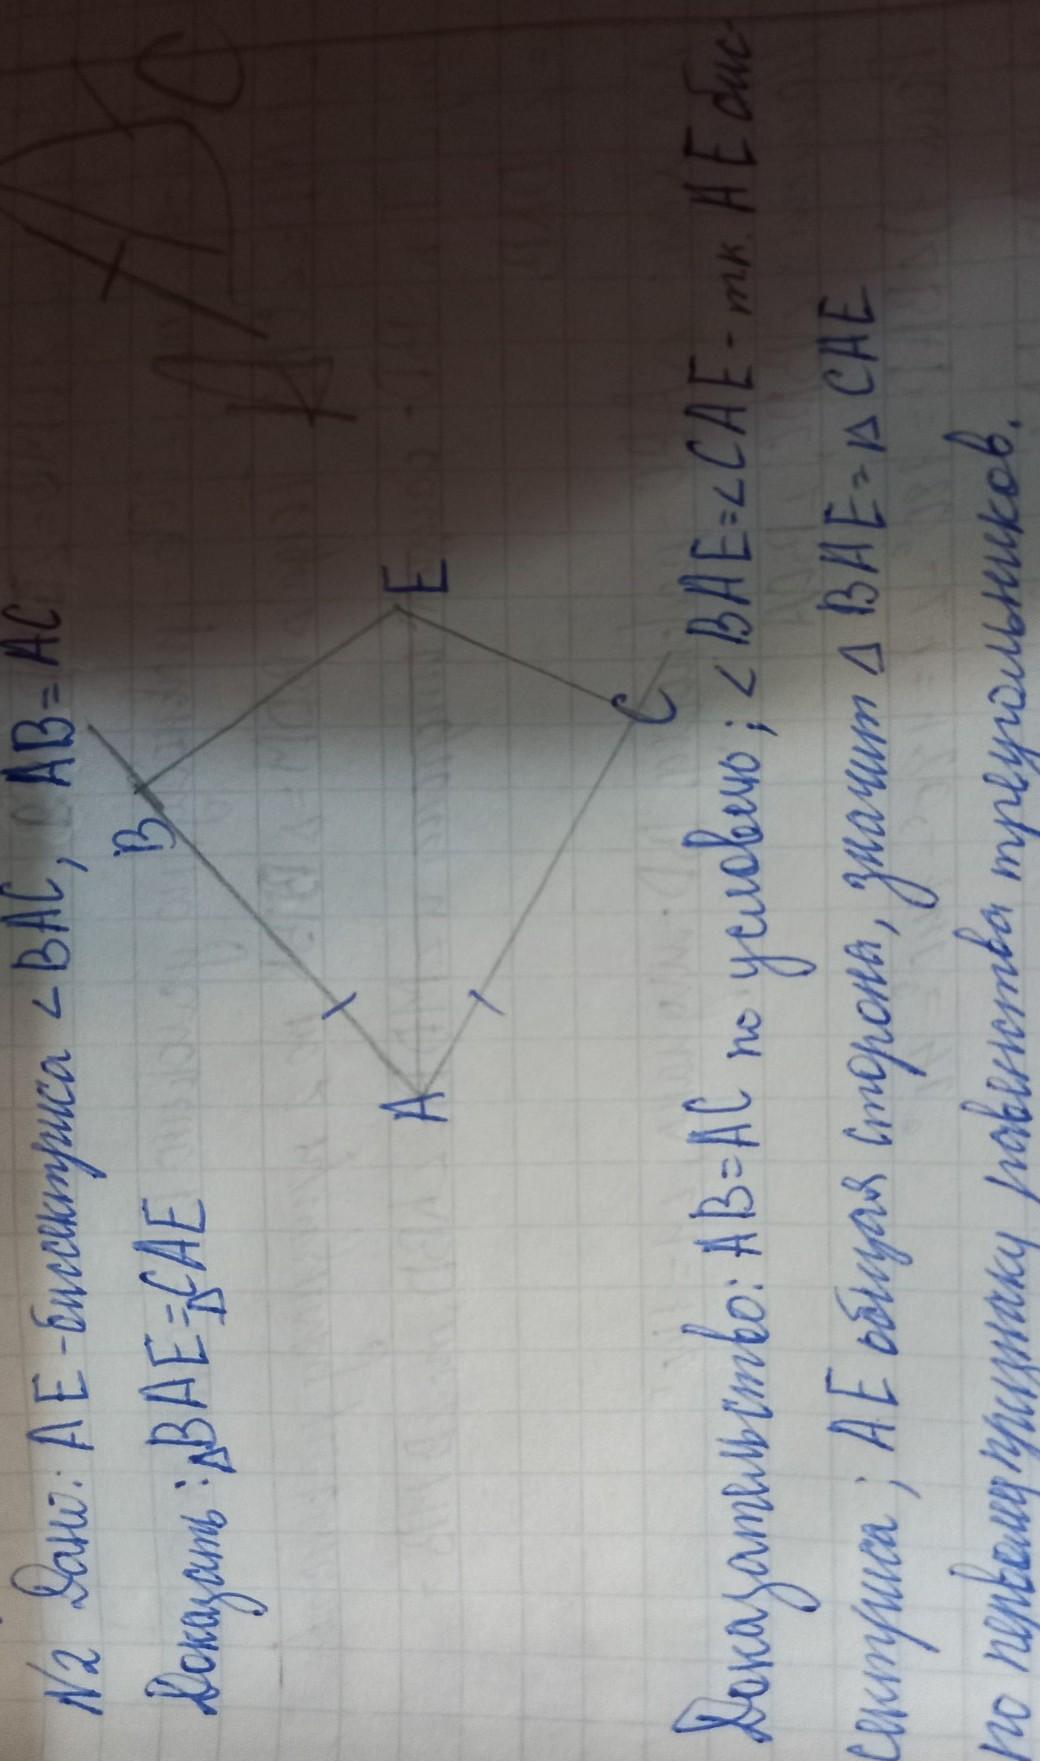 N2 Дано: AE - биссектриса ∠BAC, AB=AC
Доказать: △BAE=△CAE
B
A
E
C
Доказательство: AB=AC по условию; ∠BAE=∠CAE - т.к. AE бис-
сектриса; AE общая сторона, значит △BAE=△CAE
по первому признаку равенства треугольников.